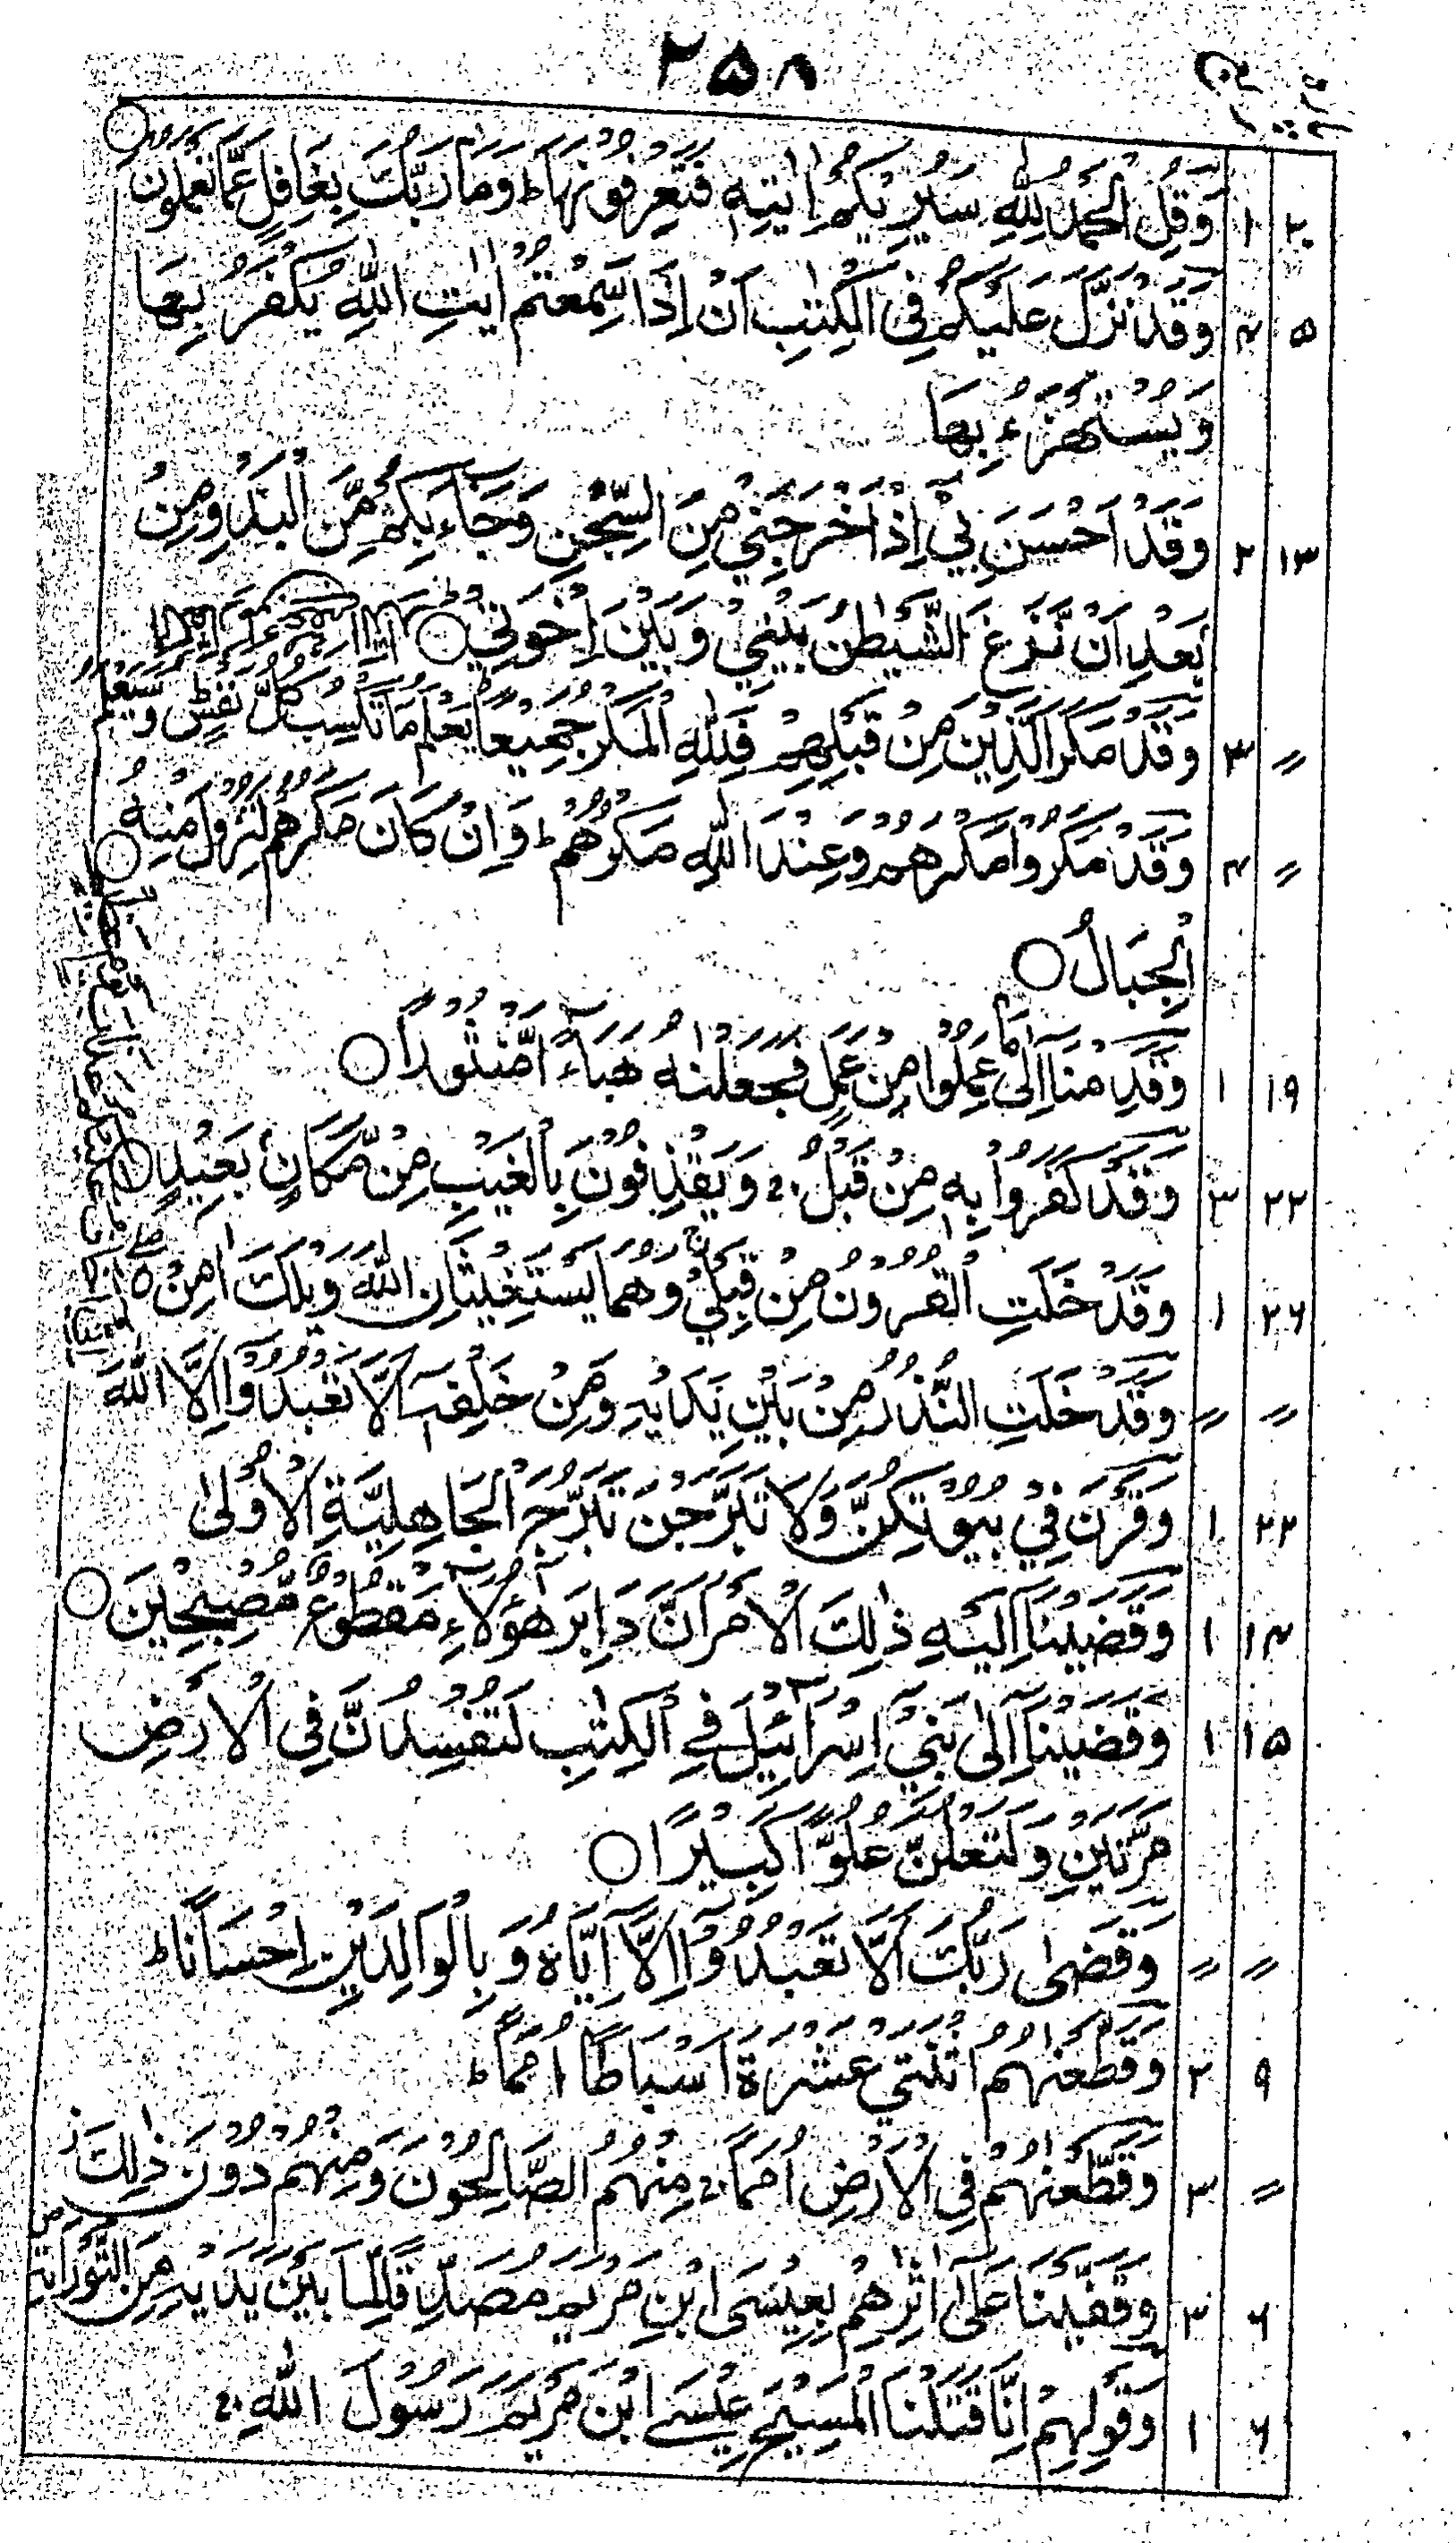 ۲۵۸
پارہ رکوع
۲۰ ۱ وَقُلِ الْحَمْدُ لِلّٰهِ سَيُرِيْكُمْ اٰيٰتِهٖ فَتَعْرِفُوْنَهَا ط وَمَا رَبُّكَ بِغَافِلٍ عَمَّا تَعْمَلُوْنَ ○
۵ ۴ وَقَدْ نَزَّلَ عَلَيْكُمْ فِى الْكِتٰبِ اَنْ اِذَا سَمِعْتُمْ اٰيٰتِ اللّٰهِ يُكْفَرُ بِهَا
وَيُسْتَهْزَءُ بِهَا
۱۳ ۲ وَقَدْ اَحْسَنَ بِيْ اِذْ اَخْرَجَنِيْ مِنَ السِّجْنِ وَجَآءَ بِكُمْ مِّنَ الْبَدْوِ مِنْ
بَعْدِ اَنْ نَّزَغَ الشَّيْطٰنُ بَيْنِيْ وَبَيْنَ اِخْوَتِيْ ○
〃 ۳ وَقَدْ مَكَرَ الَّذِيْنَ مِنْ قَبْلِهِمْ فَلِلّٰهِ الْمَكْرُ جَمِيْعًا يَعْلَمُ مَا تَكْسِبُ كُلُّ نَفْسٍ وَسَيَعْلَمُ
〃 ۴ وَقَدْ مَكَرُوْا مَكْرَهُمْ وَعِنْدَ اللّٰهِ مَكْرُهُمْ ط وَاِنْ كَانَ مَكْرُهُمْ لِتَزُوْلَ مِنْهُ
الْجِبَالُ ○
۱۹ ۱ وَقَدِمْنَآ اِلٰى مَا عَمِلُوْا مِنْ عَمَلٍ فَجَعَلْنٰهُ هَبَآءً مَّنْثُوْرًا ○
۲۲ ۳ وَقَدْ كَفَرُوْا بِهٖ مِنْ قَبْلُ ج وَيَقْذِفُوْنَ بِالْغَيْبِ مِنْ مَّكَانٍ بَعِيْدٍ ○
۲۶ ۱ وَقَدْ خَلَتِ الْقُرُوْنُ مِنْ قَبْلِيْ وَهُمَا يَسْتَغِيْثَانِ اللّٰهَ وَيْلَكَ اٰمِنْ
〃 〃 وَقَدْ خَلَتِ النُّذُرُ مِنْ بَيْنِ يَدَيْهِ وَمِنْ خَلْفِهٖٓ اَلَّا تَعْبُدُوْٓا اِلَّا اللّٰهَ
۲۲ ۱ وَقَرْنَ فِيْ بُيُوْتِكُنَّ وَلَا تَبَرَّجْنَ تَبَرُّجَ الْجَاهِلِيَّةِ الْاُوْلٰى
۱۴ ۱ وَقَضَيْنَآ اِلَيْهِ ذٰلِكَ الْاَمْرَ اَنَّ دَابِرَ هٰٓؤُلَآءِ مَقْطُوْعٌ مُّصْبِحِيْنَ ○
۱۵ ۱ وَقَضَيْنَآ اِلٰى بَنِيْٓ اِسْرَآئِيْلَ فِى الْكِتٰبِ لَتُفْسِدُنَّ فِى الْاَرْضِ
مَرَّتَيْنِ وَلَتَعْلُنَّ عُلُوًّا كَبِيْرًا ○
〃 〃 وَقَضٰى رَبُّكَ اَلَّا تَعْبُدُوْٓا اِلَّآ اِيَّاهُ وَبِالْوَالِدَيْنِ اِحْسَانًا ط
۹ ۲ وَقَطَّعْنٰهُمُ اثْنَتَيْ عَشْرَةَ اَسْبَاطًا اُمَمًا ط
〃 ۳ وَقَطَّعْنٰهُمْ فِى الْاَرْضِ اُمَمًا ج مِنْهُمُ الصَّالِحُوْنَ وَمِنْهُمْ دُوْنَ ذٰلِكَ ز
۶ ۳ وَقَفَّيْنَا عَلٰٓى اٰثٰرِهِمْ بِعِيْسَى ابْنِ مَرْيَمَ مُصَدِّقًا لِّمَا بَيْنَ يَدَيْهِ مِنَ التَّوْرٰىةِ ص
۶ ۱ وَقَوْلِهِمْ اِنَّا قَتَلْنَا الْمَسِيْحَ عِيْسَى ابْنَ مَرْيَمَ رَسُوْلَ اللّٰهِ ج